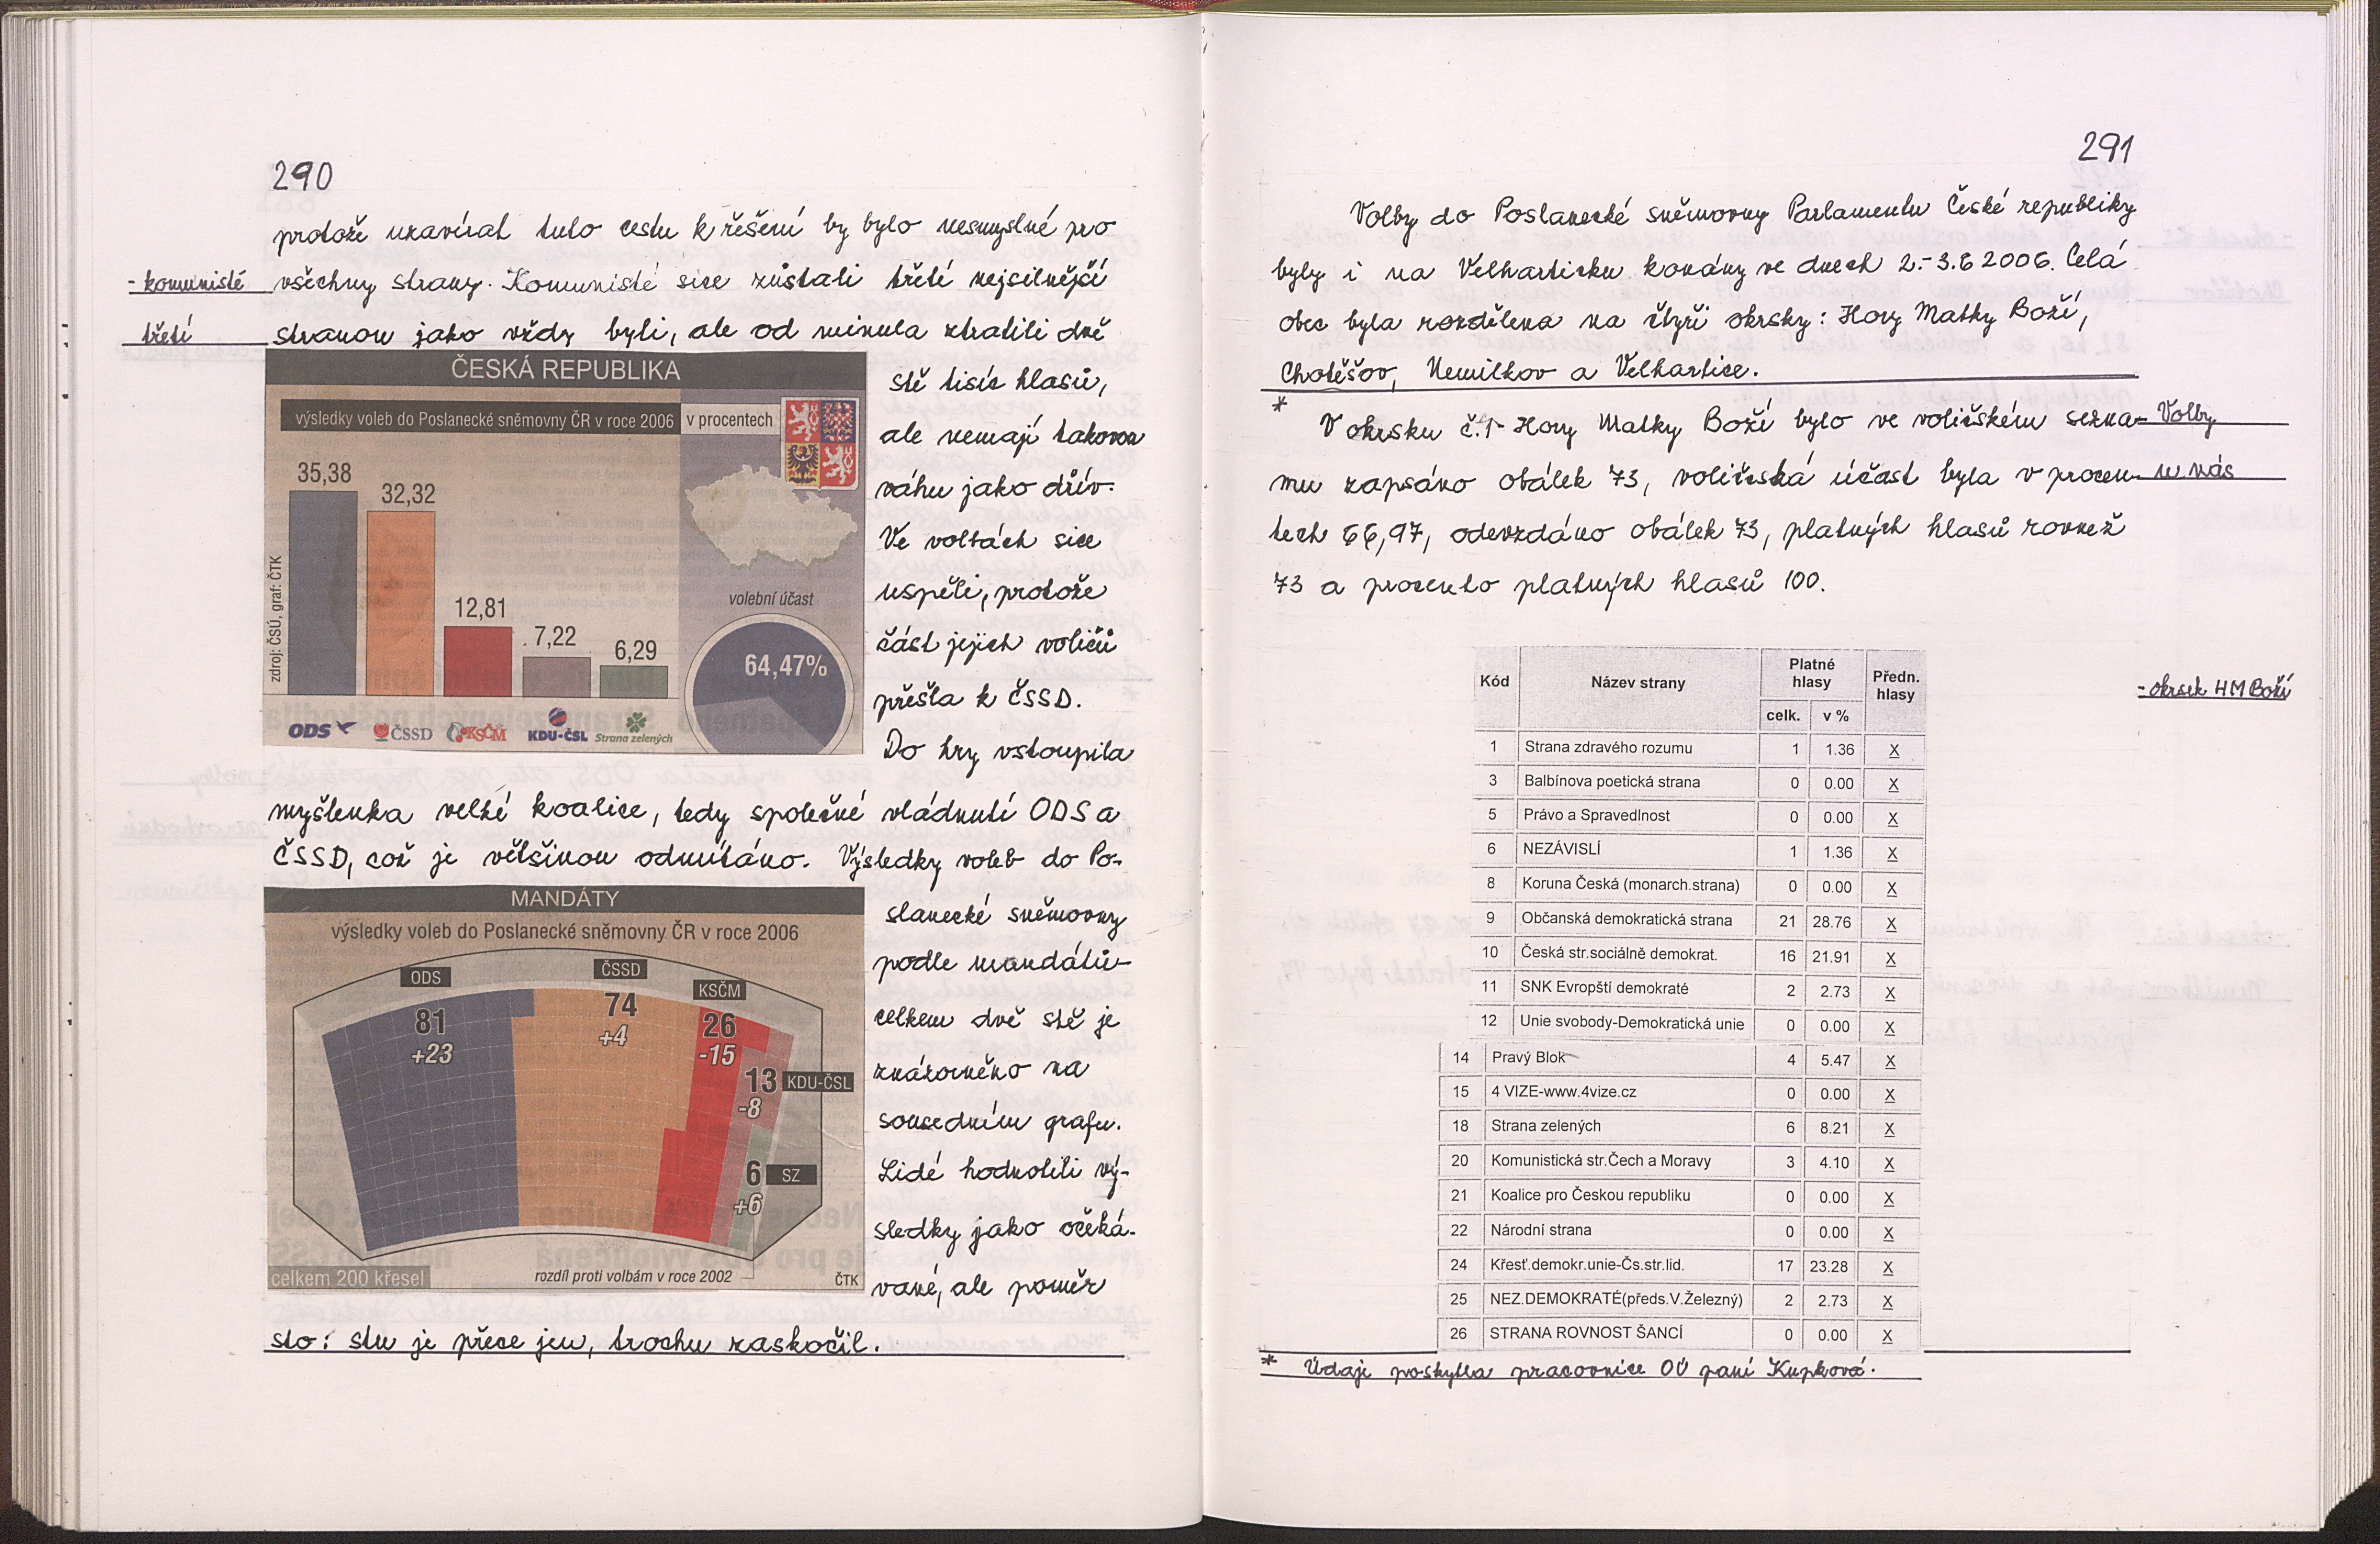 290
protože uzavírat tuto cestu k řešení by bylo nesmyslné pro
- komunisté
všechny strany. Komunisté sice zůstali třetí nejsilnější
třetí
stranou jako vždy byli, ale od minula ztratili dvě
ČESKÁ REPUBLIKA
výsledky voleb do Poslanecké sněmovny ČR v roce 2006
v procentech
35,38
32,32
12,81
7,22
6,29
volební účast
64,47%
zdroj: ČSÚ, graf: ČTK
ODS
ČSSD
KSČM
KDU-ČSL
Strana zelených
stě tisíc hlasů,
ale nemají takovou
váhu jako dřív.
Ve volbách sice
uspěli, protože
část jejich voličů
přešla k ČSSD.
Do hry vstoupila
myšlenka velké koalice, tedy společné vládnutí ODS a
ČSSD, což je většinou odmítáno. Výsledky voleb do Po-
MANDÁTY
výsledky voleb do Poslanecké sněmovny ČR v roce 2006
ODS
81
+23
ČSSD
74
+4
KSČM
26
-15
13
KDU-ČSL
-8
6
SZ
+6
celkem 200 křesel
rozdíl proti volbám v roce 2002
ČTK
slanecké sněmovny
podle mandátů
celkem dvě stě je
znázorněno na
sousedním grafu.
Lidé hodnotili vý-
sledky jako očeká-
vané, ale poměr
sto : stu je přece jen, trochu zaskočil.
291
Volby do Poslanecké sněmovny Parlamentu České republiky
byly i na Velharticku konány ve dnech 2.-3.6 2006. Celá
obec byla rozdělena na čtyři okrsky: Hory Matky Boží,
Chotěšov, Nemilkov a Velhartice.
*
V okrsku č.1 Hory Matky Boží bylo ve voličském sezna-
Volby
mu zapsáno obálek 73, voličská účast byla v procen-
u nás
tech 66,97, odevzdáno obálek 73, platných hlasů rovněž
73 a procento platných hlasů 100.
- okrsek HM Boží
Kód Název strany Platné hlasy Předn. hlasy
celk. v %
1 Strana zdravého rozumu 1 1.36 X
3 Balbínova poetická strana 0 0.00 X
5 Právo a Spravedlnost 0 0.00 X
6 NEZÁVISLÍ 1 1.36 X
8 Koruna Česká (monarch.strana) 0 0.00 X
9 Občanská demokratická strana 21 28.76 X
10 Česká str.sociálně demokrat. 16 21.91 X
11 SNK Evropští demokraté 2 2.73 X
12 Unie svobody-Demokratická unie 0 0.00 X
14 Pravý Blok 4 5.47 X
15 4 VIZE-www.4vize.cz 0 0.00 X
18 Strana zelených 6 8.21 X
20 Komunistická str.Čech a Moravy 3 4.10 X
21 Koalice pro Českou republiku 0 0.00 X
22 Národní strana 0 0.00 X
24 Křesť.demokr.unie-Čs.str.lid. 17 23.28 X
25 NEZ.DEMOKRATÉ(předs.V.Železný) 2 2.73 X
26 STRANA ROVNOST ŠANCÍ 0 0.00 X
* Údaje poskytla pracovnice OÚ paní Kupková.